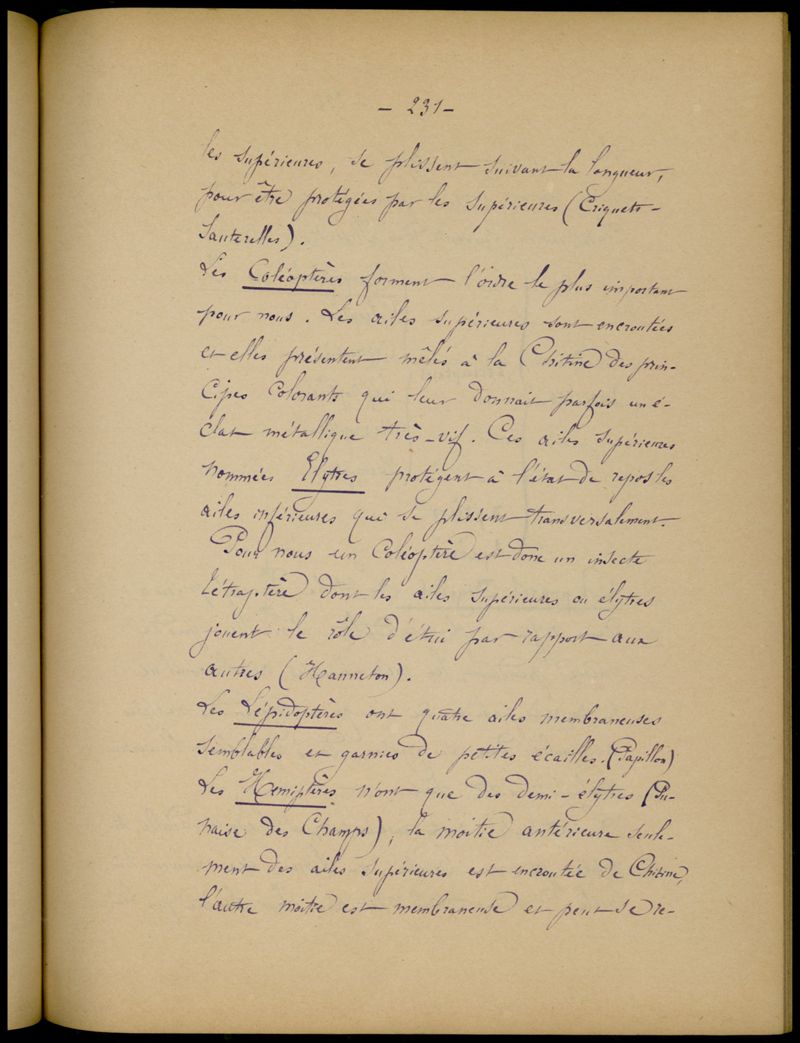 - 231 -
les supérieures, se plissent suivant la longueur,
pour être protégées par les supérieures (Criquets -
Sauterelles).
Les Coléoptères forment l'ordre le plus important
pour nous. Les ailes supérieures sont encroutées
et elles présentent mêlés à la Chitine des prin-
cipes colorants qui leur donnait parfois un é-
clat métallique très-vif. Ces ailes supérieures
nommées Elytres protégent à l'état de repos les
ailes inférieures qui se plissent transversalement.
Pour nous un Coléoptère est donc un insecte
tétraptère dont les ailes supérieures ou élytres
jouent le rôle d'étui par rapport aux
autres (Hanneton).
Les Lépidoptères ont quatre ailes membraneuses
semblables et garnies de petites écailles. (Papillon)
Les Hemiptères n'ont que des demi-élytres (Pu-
naise des Champs), la moitié antérieure seule-
ment des ailes supérieures est encroutée de Chitine,
l'autre moitié est membraneuse et peut se re-